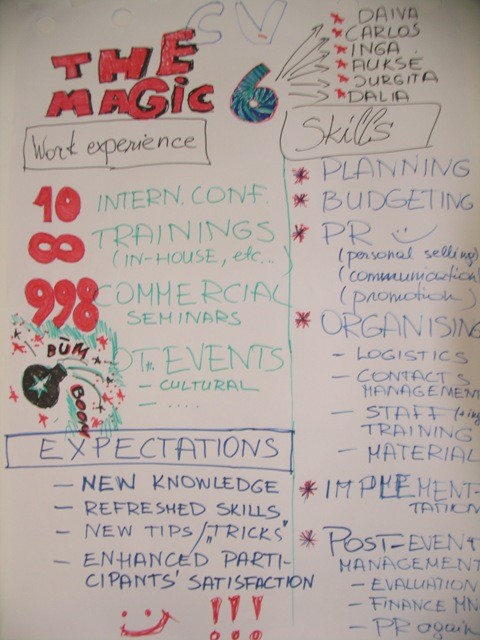 CV
THE
MAGIC
6
DAIVA
CARLOS
INGA
AUKSĖ
JURGITA
DALIA
Work experience
10 INTERN. CONF.
∞ TRAININGS
(IN-HOUSE, etc...
998 COMMERCIAL
SEMINARS
BŪM
BOOM
OTH. EVENTS
- CULTURAL
- ....
EXPECTATIONS
- NEW KNOWLEDGE
- REFRESHED SKILLS
- NEW TIPS/„TRICKS"
- ENHANCED PARTI-
CIPANTS' SATISFACTION
!!!
Skills
* PLANNING
* BUDGETING
* PR
(personal selling)
(communication
(promotion)
* ORGANISING
- LOGISTICS
- CONTACTS
MANAGEMENT
- STAFF
TRAINING
- MATERIAL
* IMPLEMENT-
TATION
* POST-EVENT
MANAGEMENT
- EVALUATION
- FINANCE MN
- PR again